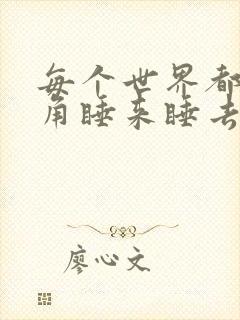 每个世界都
角睡来睡去
廖心文